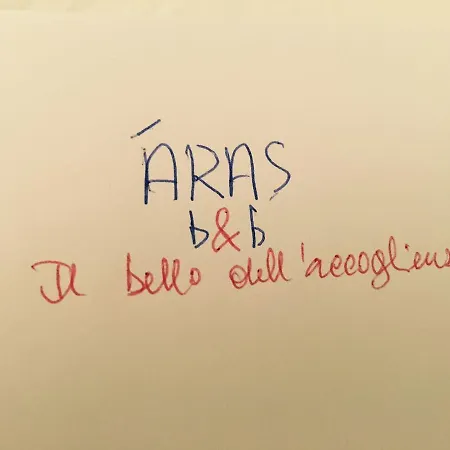 ÁRAS
b&b
Il bello dell'accogliens